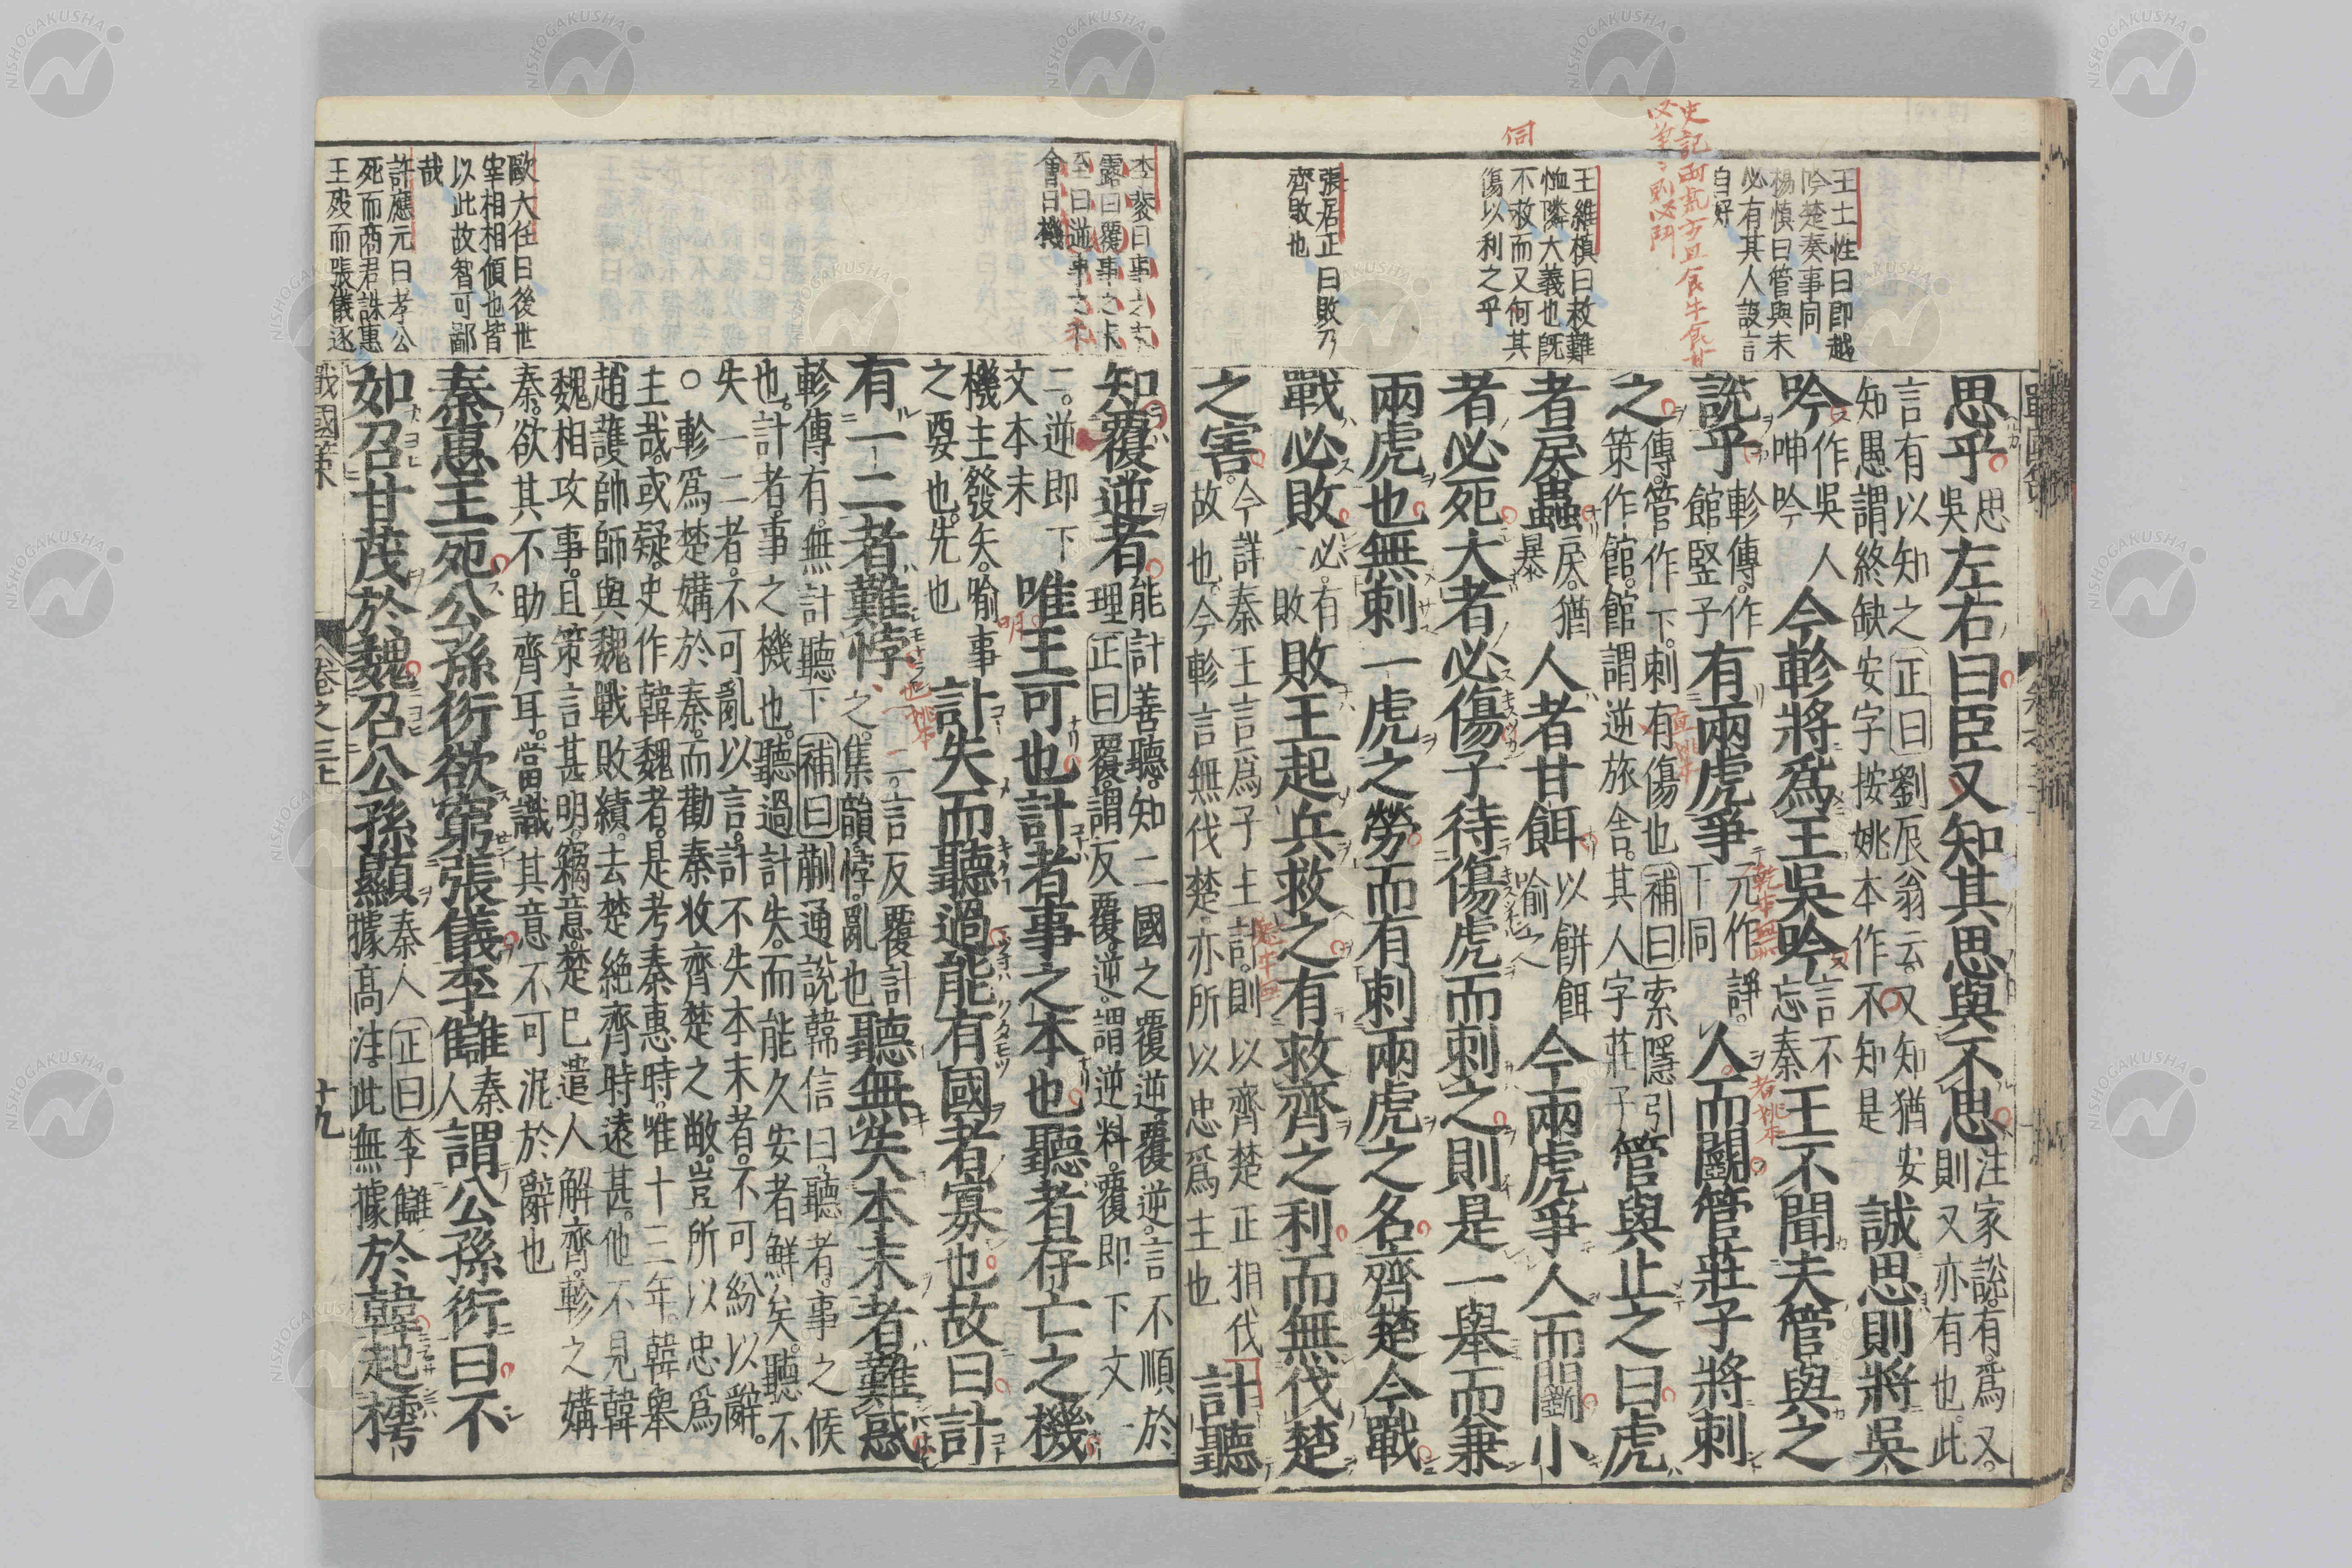 王士性曰即越
吟楚奏事同
楊慎曰管與未
必有其人設言
自好
史記兩虎方且食牛食甘
必爭爭則必鬪
王維楨曰救難
恤隣大義也既
不救而又何其
傷以利之乎
伺
張居正曰敗乃
齊敗也
戰國策
思乎思吳左右曰臣又知其思與不思注家訟有爲又則又亦有也此
言有以知之正曰劉辰翁云又知猶安
知愚謂終缺安字按姚本作不知是誠思則將吳
吟作吳人呻吟今軫將爲王吳吟言不忘秦王不聞夫管與之
說乎軫傳作館竪子有兩虎爭元作諍下同人而鬪管莊子將刺
之傳管作下刺有傷也補曰索隱引
策作館館謂逆旅舍其人字莊子管與止之曰虎
者戾蟲戾猶暴人者甘餌以餠餌喻之今兩虎爭人而鬪小
者必死大者必傷子待傷虎而刺之則是一舉而兼
兩虎也無刺一虎之勞而有刺兩虎之名齊楚今戰
戰必敗必有敗敗王起兵救之有救齊之利而無伐楚
之害今詳秦王言爲子主計則以齊楚正相伐
故也今軫言無伐楚亦所以忠爲主也計聽
李
露曰覆事之
至曰逆事之
會曰機
歐大任曰後世
宰相相傾也皆
以此故智可鄙
哉
許應元曰孝公
死而商君誅惠
王歿而張儀逐
知覆逆者能計善聽知二國之覆逆覆逆言不順於
理正曰覆謂反覆逆謂逆料覆即下文一
二逆即下文本末唯王可也計者事之本也聽者存亡之機
機主發矢喻事之要也先也計失而聽過能有國者寡也故曰計
有一二者難悖一二言反覆計之集韻悖亂也聽無失本末者難惑
軫傳有無計聽下補曰蒯通說韓信曰聽者事之候
也計者事之機也聽過計失而能久安者鮮矣聽不
失一二者不可亂以言計不失本末者不可紛以辭
○軫爲楚媾於秦而勸秦收齊楚之敝豈所以忠爲
主哉或疑史作韓魏者是考秦惠時唯十三年韓舉
趙護帥師與魏戰敗績去楚絶齊時遠甚他不見韓
魏相攻事且策言甚明竊意楚已遣人解齊軫之媾
秦欲其不助齊耳當識其意不可泥於辭也
秦惠王死公孫衍欲窮張儀李讎秦人謂公孫衍曰不
如召甘茂於魏召公孫顯秦人正曰李讎於韓起樗
據高注此無據
戰國策
卷之三上
十九